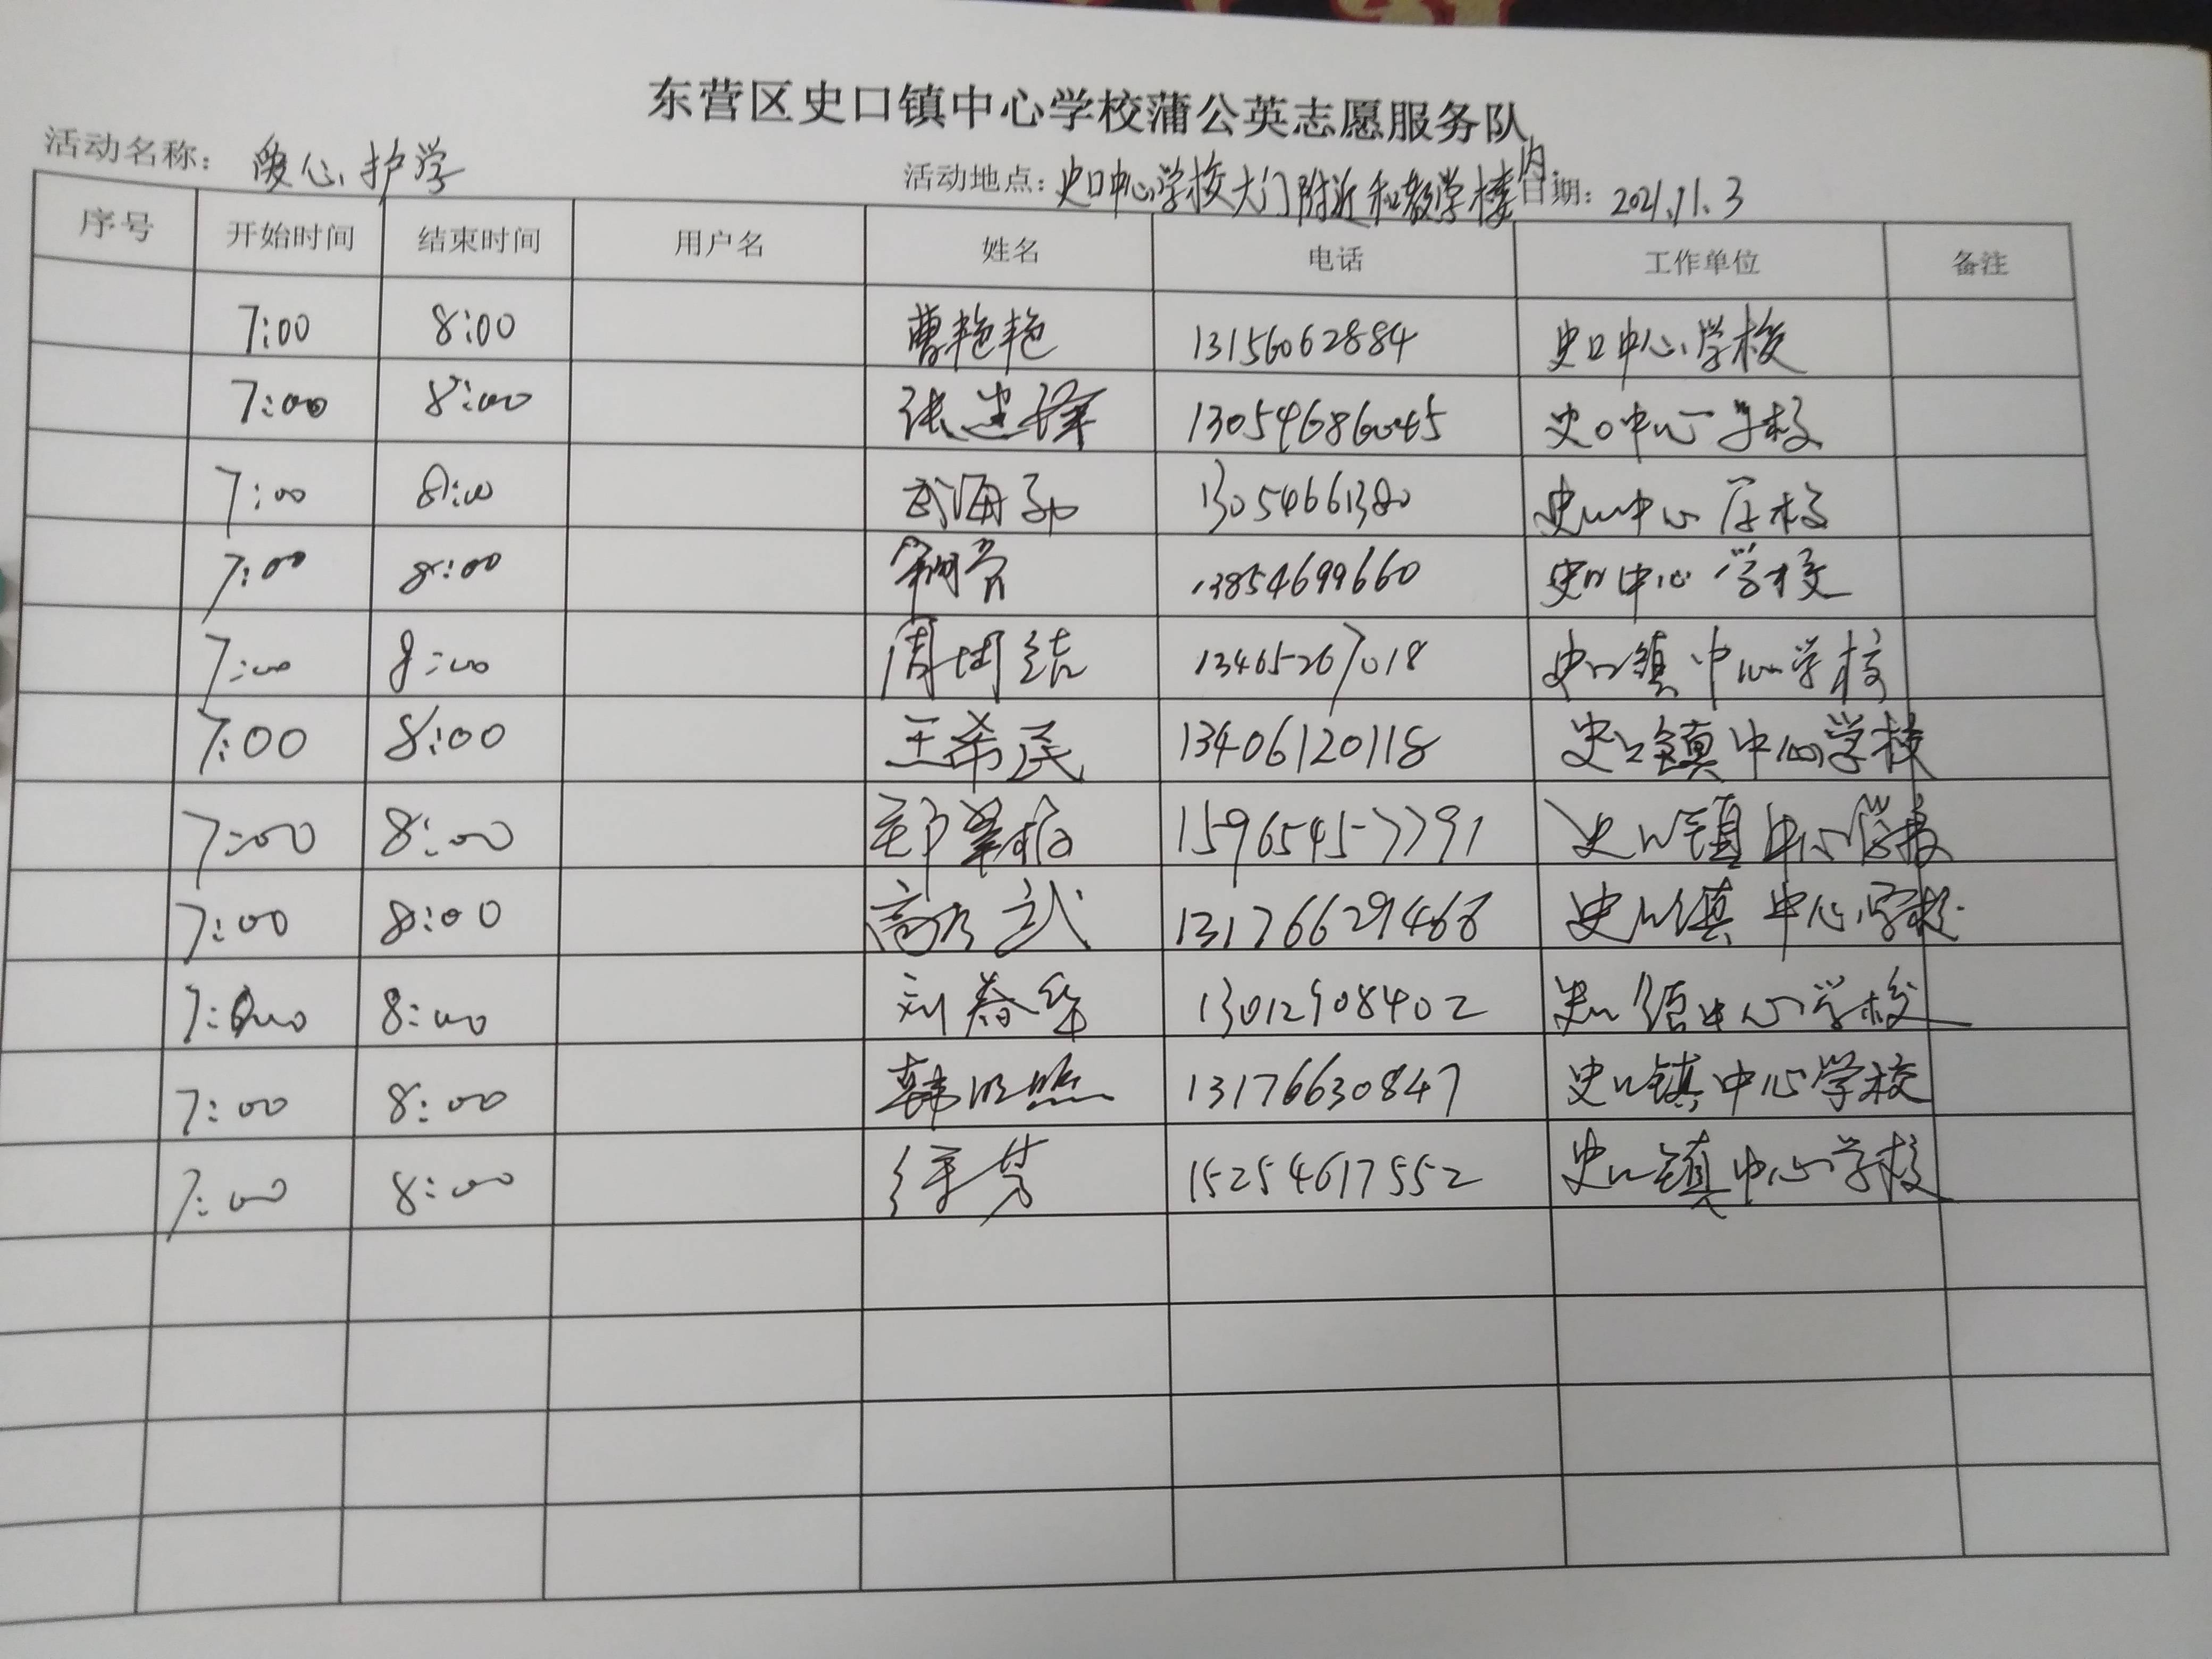 东营区史口镇中心学校蒲公英志愿服务队
活动名称： 暖心护学 活动地点：史口中心学校大门附近和教学楼内 日期：2021.11.3
序号 开始时间 结束时间 用户名 姓名 电话 工作单位 备注
7:00 8:00 曹艳艳 13156062884 史口中心学校
7:00 8:00 张建 13054686045 史口中心学校
7:00 8:00 武海 13054661380 史口中心学校
7:00 8:00 13854699660 史口中心学校
7:00 8:00 周 13465267018 史口镇中心学校
7:00 8:00 王希民 13406120118 史口镇中心学校
7:00 8:00 15965457791 史口镇中心学校
7:00 8:00 高 武 13176629468 史口镇中心学校
7:00 8:00 刘春华 13012908402 史口镇中心学校
7:00 8:00 韩明照 13176630847 史口镇中心学校
7:00 8:00 15254617552 史口镇中心学校